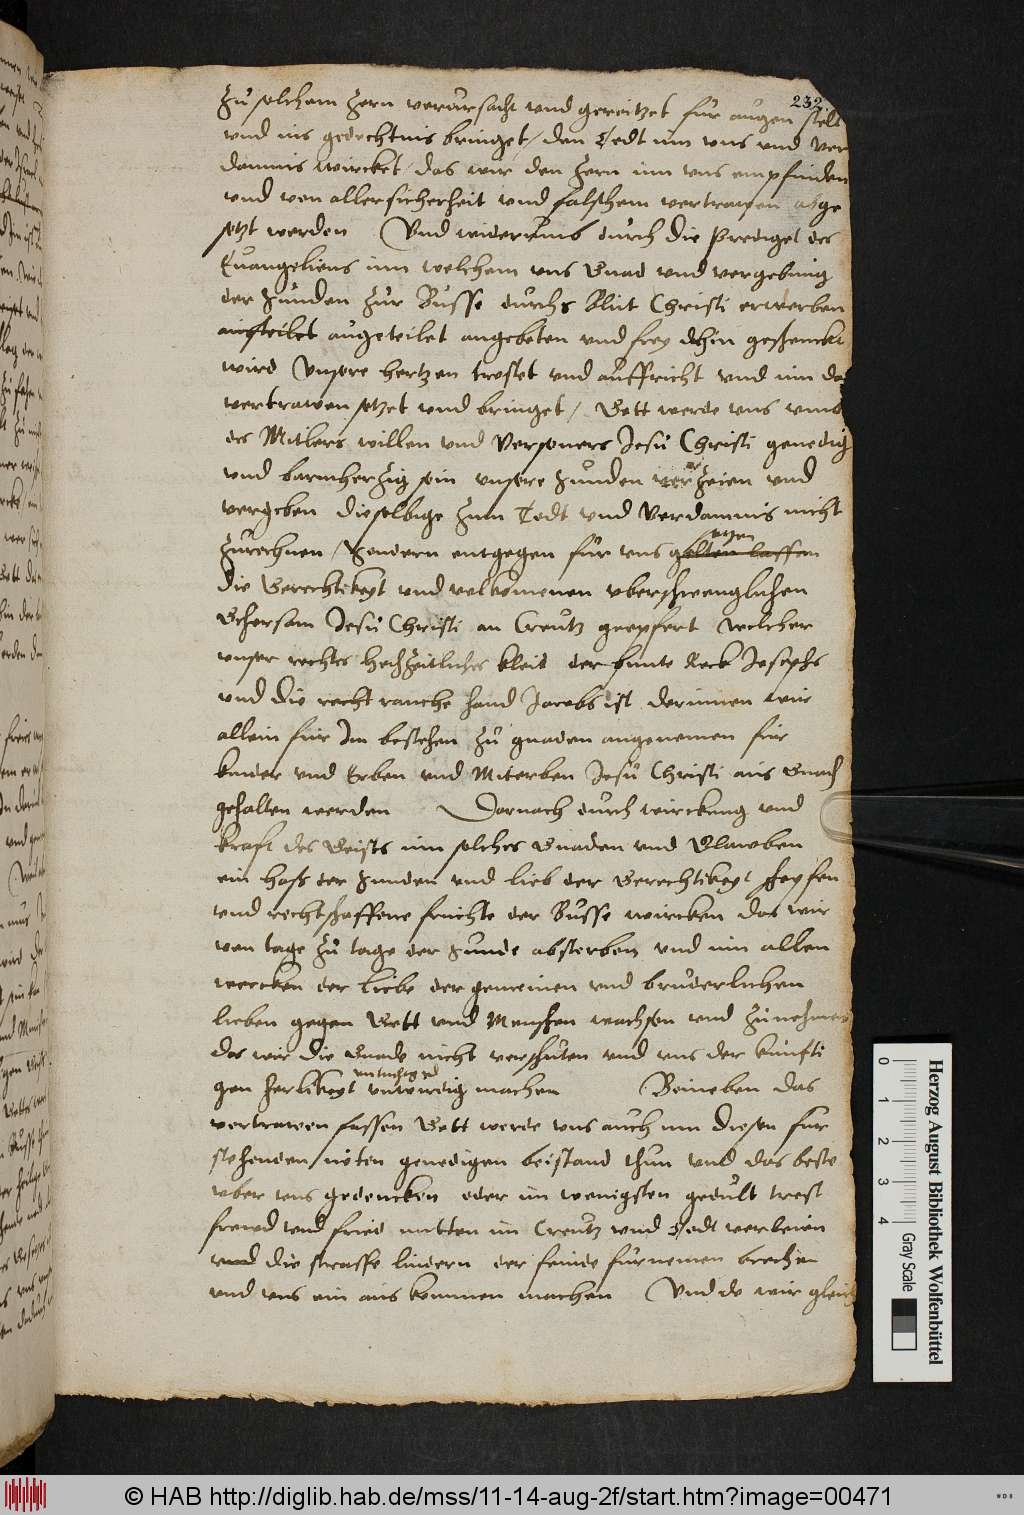 232.
zu solchem zorn verursacht vnd gereitzet für augen stelt
vnd ins gedechtnis bringet / den Todt inn vns vnd Ver
damnis wircket das wir den zorn inn vns empfinden
vnd von aller sicherheit vnd falschem vertrawen abge
setzt werden Vnd widerumb durch die Prediget des
Euangelions inn welchem vns Gnad vnd vergebung
der sunden zur Busse durchs Blut Christi erworben
ausgeteilet angeboten vnd frey dohin geschenckt
wird Vnsere hertzen trostet vnd auffricht vnd inn das
vertrawen setzet vnd bringet / Gott werde vns vmb
des Mitlers willen vnd Versoners Jesu Christi genedig
vnd barmherzig sein vnsere sunden verzeien vnd
vergeben dieselbige zum Todt vnd Verdamnis nicht
zurechnen / Sondern entgegen für vns setzen
die Gerechtikeyt vnd volkomenen vberschwenglichen
Gehorsam Jesu Christi an Creutz geopfert Welcher
vnser rechtes hochzeitliches kleid der bunte Rock Josephs
vnd die recht rauche hand Jacobs ist dorinnen wir
allein für Im bestehen zu gnaden angenomen für
kinder vnd Erben vnd Miterben Jesu Christi aus Gnad
gehalten werden Darnach durch wirckung vnd
kraft des Geists inn solches Gnaden vnd Glawben
ein hass der sunden vnd lieb der Gerechtikeyt schepfen
vnd rechtschaffene früchte der Busse wircken das wir
von tage zu tage der sunde absterben vnd inn allen
wercken der liebe der gemeinen vnd bruderlichen
lieben gegen Gott vnd Menschen wachsen vnd zunehmen
das wir die Gnade nicht verschuten vnd vns der kunfti
gen herlikeyt vnwirdig machen Beineben das
vertrawen fassen Gott werde vns auch inn diesen für
stehenden nöten genedigen beistand thun vnd das beste
vber vns gedencken oder im wenigsten gedult trost
frewd vnd fried mitten im Creutz vnd Todt verleien
vnd die straffe lindern der feinde fürnemen brechen
vnd vns ein auskommen machen Vnd do wir gleich
Herzog August Bibliothek Wolfenbüttel
0 1 2 3 4
Gray Scale
© HAB http://diglib.hab.de/mss/11-14-aug-2f/start.htm?image=00471